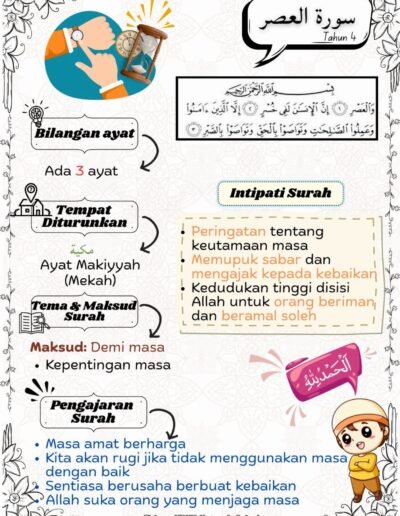 سورة العصر
Tahun 4
بِسْمِ اللَّهِ الرَّحْمَٰنِ الرَّحِيمِ
وَالْعَصْرِ ﴿١﴾ إِنَّ الْإِنسَانَ لَفِي خُسْرٍ ﴿٢﴾ إِلَّا الَّذِينَ آمَنُوا
وَعَمِلُوا الصَّالِحَاتِ وَتَوَاصَوْا بِالْحَقِّ وَتَوَاصَوْا بِالصَّبْرِ ﴿٣﴾
Bilangan ayat
Ada 3 ayat
Tempat
Diturunkan
مكية
Ayat Makiyyah
(Mekah)
Tema & Maksud
Surah
Maksud: Demi masa
• Kepentingan masa
Intipati Surah
• Peringatan tentang
keutamaan masa
• Memupuk sabar dan
mengajak kepada kebaikan
• Kedudukan tinggi disisi
Allah untuk orang beriman
dan beramal soleh
الحمد لله
Pengajaran
Surah
• Masa amat berharga
• Kita akan rugi jika tidak menggunakan masa
dengan baik
• Sentiasa berusaha berbuat kebaikan
• Allah suka orang yang menjaga masa